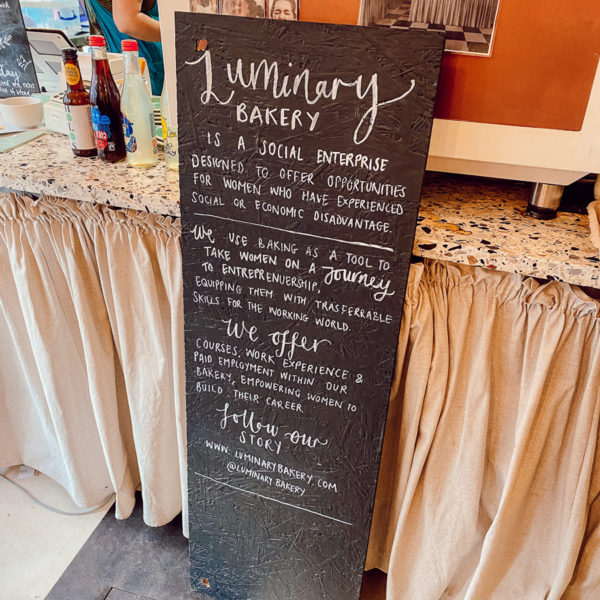 Luminary
BAKERY
IS A SOCIAL ENTERPRISE
DESIGNED TO OFFER OPPORTUNITIES
FOR WOMEN WHO HAVE EXPERIENCED
SOCIAL OR ECONOMIC DISADVANTAGE.
We USE BAKING AS A TOOL TO
TAKE WOMEN ON A journey
TO ENTREPRENUERSHIP,
EQUIPPING THEM WITH TRASFERRABLE
SKILLS FOR THE WORKING WORLD.
We offer
COURSES, WORK EXPERIENCE &
PAID EMPLOYMENT WITHIN OUR
BAKERY, EMPOWERING WOMEN TO
BUILD THEIR CAREER
follow our
STORY
WWW.LUMINARYBAKERY.COM
@LUMINARYBAKERY